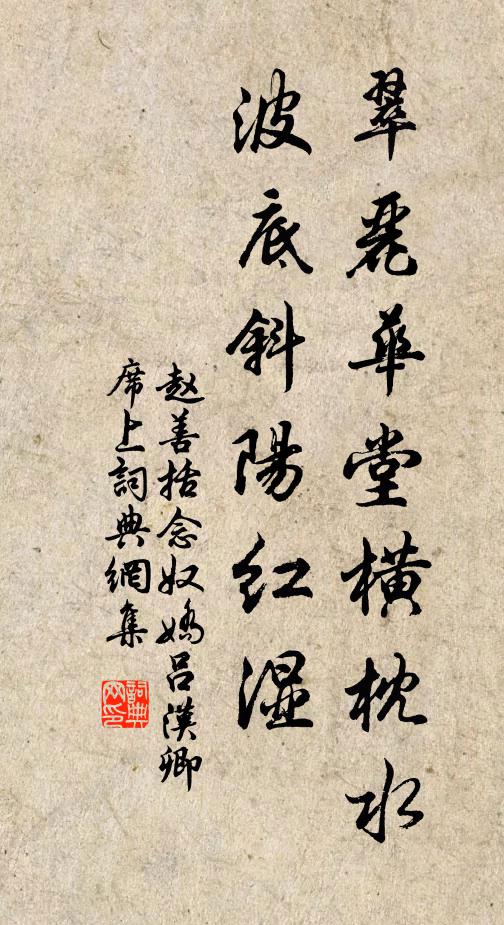 翠麗華堂橫枕水
波底斜陽紅濕
趙善括念奴嬌呂漢卿
席上詞典網集
詞典
网印